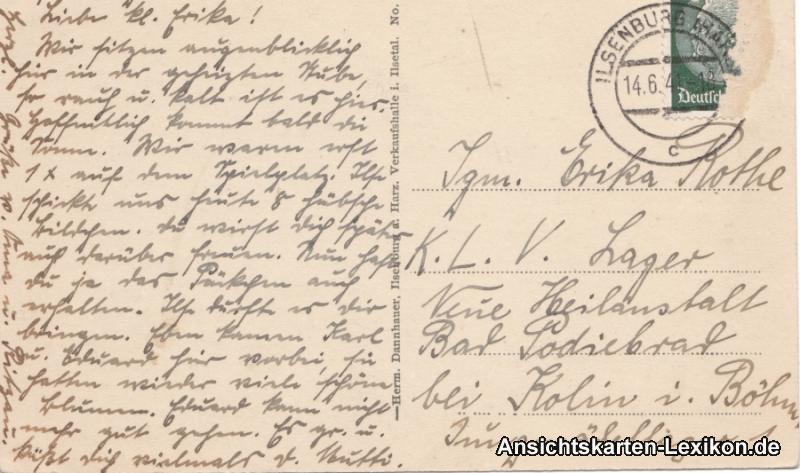 Liebe kl. Erika!
Wir sitzen augenblicklich
hier in der geheizten Stube,
so rauh u. kalt ist es hier.
Hoffentlich kommt bald die
Sonne. Wir waren erst
1 x auf dem Spielplatz. Ilse
schickte uns heute 8 hübsche
Bildchen. Du wirst dich später
auch darüber freuen. Nun hast
du ja das Päckchen auch
erhalten. Ilse durfte es dir
bringen. Eben kamen Karl
u. Eduard hier vorbei, sie
hatten wieder viele schöne
Blumen. Eduard kann nicht
mehr gut gehen. Es gr. u.
küßt dich vielmals d. Mutti.
Herzl. Grüße v. u.
Herm. Dannhauer, Ilsenburg a. Harz. Verkaufshalle i. Ilsetal. No.
ILSENBURG (HARZ)
14.6.41
c
Deutsch
Jgm. Erika Rothe
K. L. V. Lager
Neue Heilanstalt
Bad Podiebrad
bei Kolin i. Böhm.
Ansichtskarten-Lexikon.de